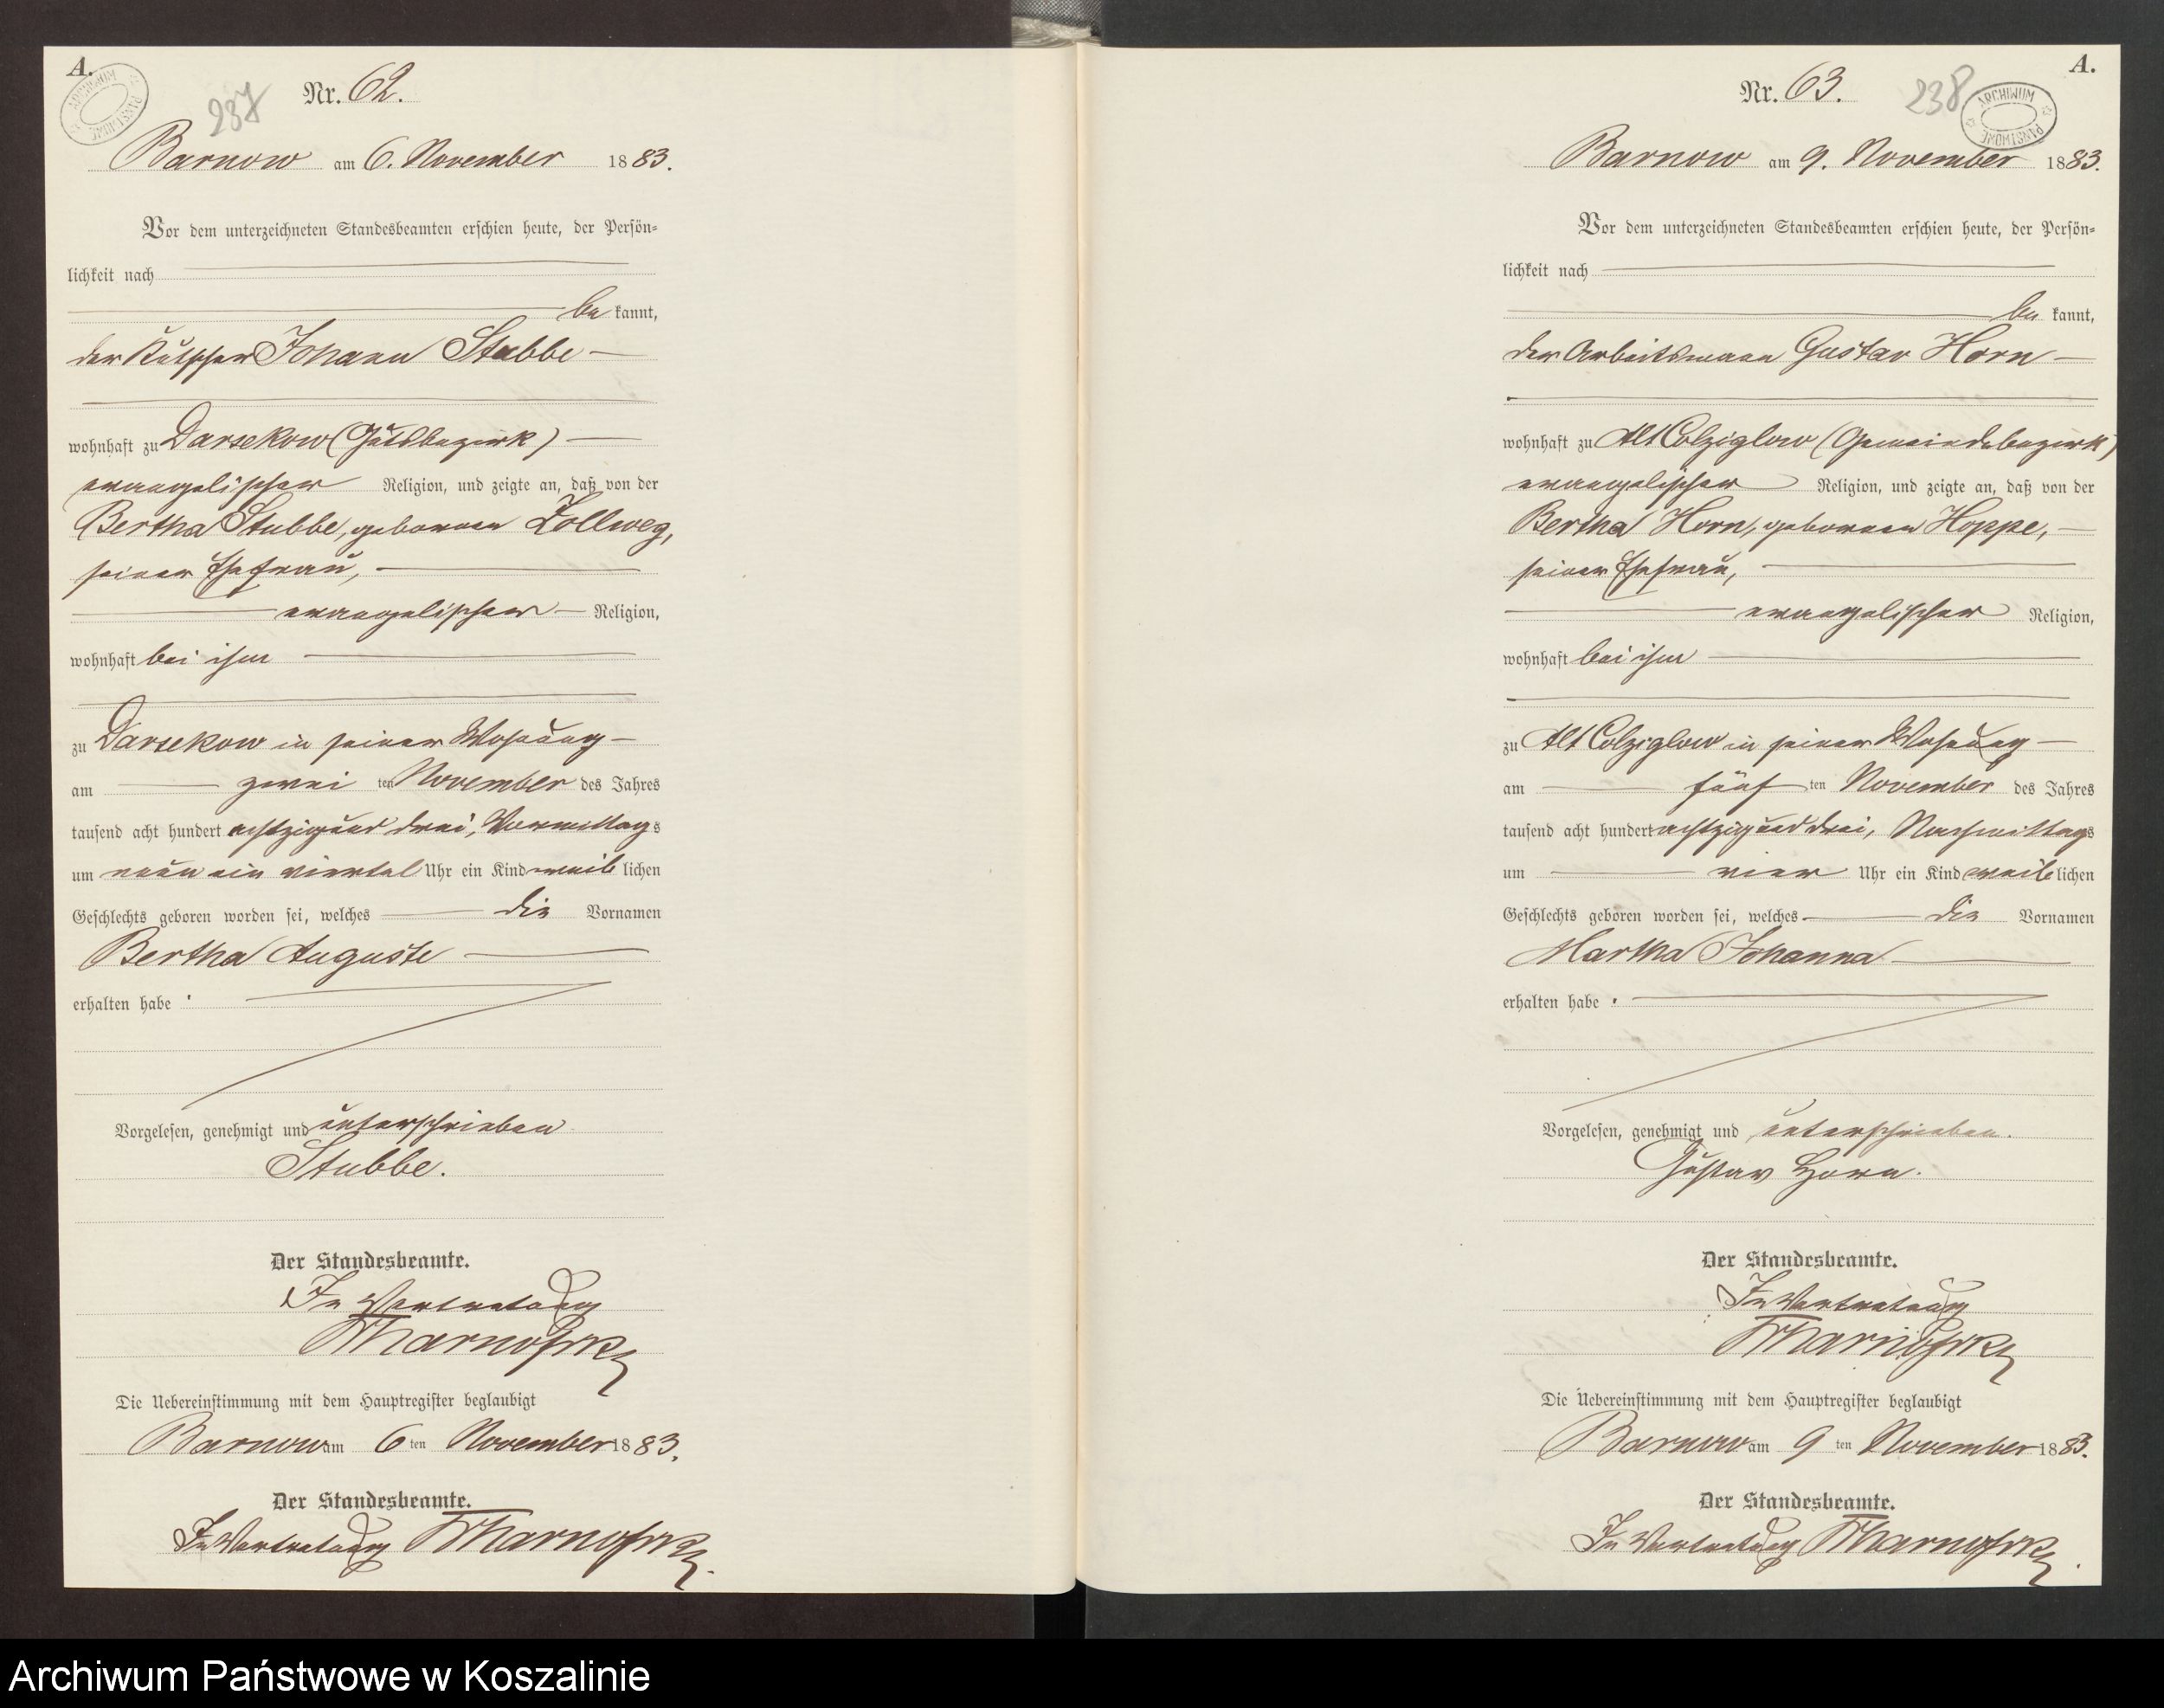 A.
ARCHIWUM PAŃSTWOWE
237
Nr. 62.
Barnow am 6. November 1883.
Vor dem unterzeichneten Standesbeamten erschien heute, der Persön-
lichkeit nach
be kannt,
der Kutscher Johann Stubbe
wohnhaft zu Darsekow (Gutsbezirk)
evangelischer Religion, und zeigte an, daß von der
Bertha Stubbe, geborenen Zollweg,
seiner Ehefrau,
evangelischer Religion,
wohnhaft bei ihm
zu Darsekow in seiner Wohnung
am zwei ten November des Jahres
tausend acht hundert achtzig und drei, Vormittags
um neun ein viertel Uhr ein Kind weib lichen
Geschlechts geboren worden sei, welches die Vornamen
Bertha Auguste
erhalten habe.
Vorgelesen, genehmigt und unterschrieben
Stubbe.
Der Standesbeamte.
In Vertretung
Die Uebereinstimmung mit dem Hauptregister beglaubigt
Barnow am 6 ten November 1883.
Der Standesbeamte.
In Vertretung
A.
ARCHIWUM PAŃSTWOWE
238
Nr. 63.
Barnow am 9. November 1883.
Vor dem unterzeichneten Standesbeamten erschien heute, der Persön-
lichkeit nach
be kannt,
der Arbeitsmann Gustav Horn
wohnhaft zu Alt Colziglow (Gemeindebezirk)
evangelischer Religion, und zeigte an, daß von der
Bertha Horn, geborenen Hoppe,
seiner Ehefrau,
evangelischer Religion,
wohnhaft bei ihm
zu Alt Colziglow in seiner Wohnung
am fünf ten November des Jahres
tausend acht hundert achtzig und drei, Nachmittags
um vier Uhr ein Kind weib lichen
Geschlechts geboren worden sei, welches die Vornamen
Martha Johanna
erhalten habe.
Vorgelesen, genehmigt und unterschrieben.
Gustav Horn.
Der Standesbeamte.
In Vertretung
Die Uebereinstimmung mit dem Hauptregister beglaubigt
Barnow am 9 ten November 1883.
Der Standesbeamte.
In Vertretung
Archiwum Państwowe w Koszalinie